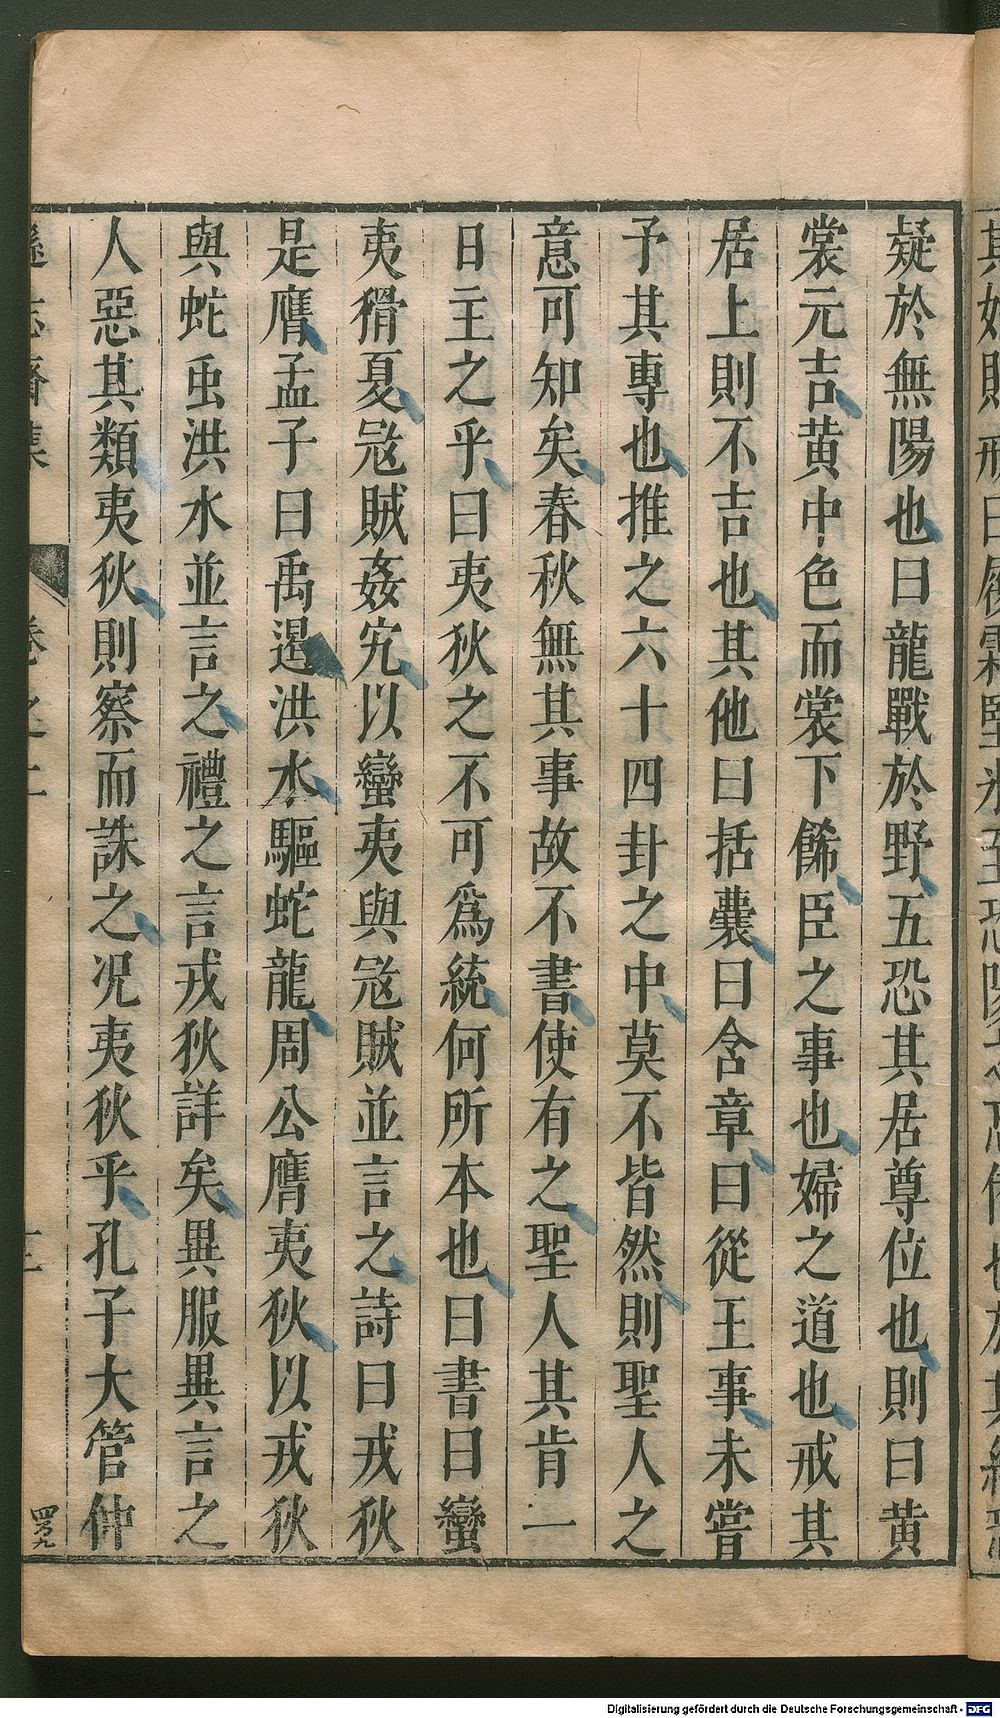 疑於無陽也曰龍戰於野五恐其居尊位也則曰黄
裳元吉黄中色而裳下餙臣之事也婦之道也戒其
居上則不吉也其他曰括囊曰含章曰從王事未嘗
予其專也推之六十四卦之中莫不皆然則聖人之
意可知矣春秋無其事故不書使有之聖人其肯一
日主之乎曰夷狄之不可爲統何所本也曰書曰蠻
夷猾夏宼賊姦宄以蠻夷與宼賊並言之詩曰戎狄
是膺孟子曰禹遏洪水驅蛇龍周公膺夷狄以戎狄
與蛇虫洪水並言之禮之言戎狄詳矣異服異言之
人惡其類夷狄則察而誅之况夷狄乎孔子大管仲
遜志齋集
卷之二
四百九
Digitalisierung gefördert durch die Deutsche Forschungsgemeinschaft - DFG